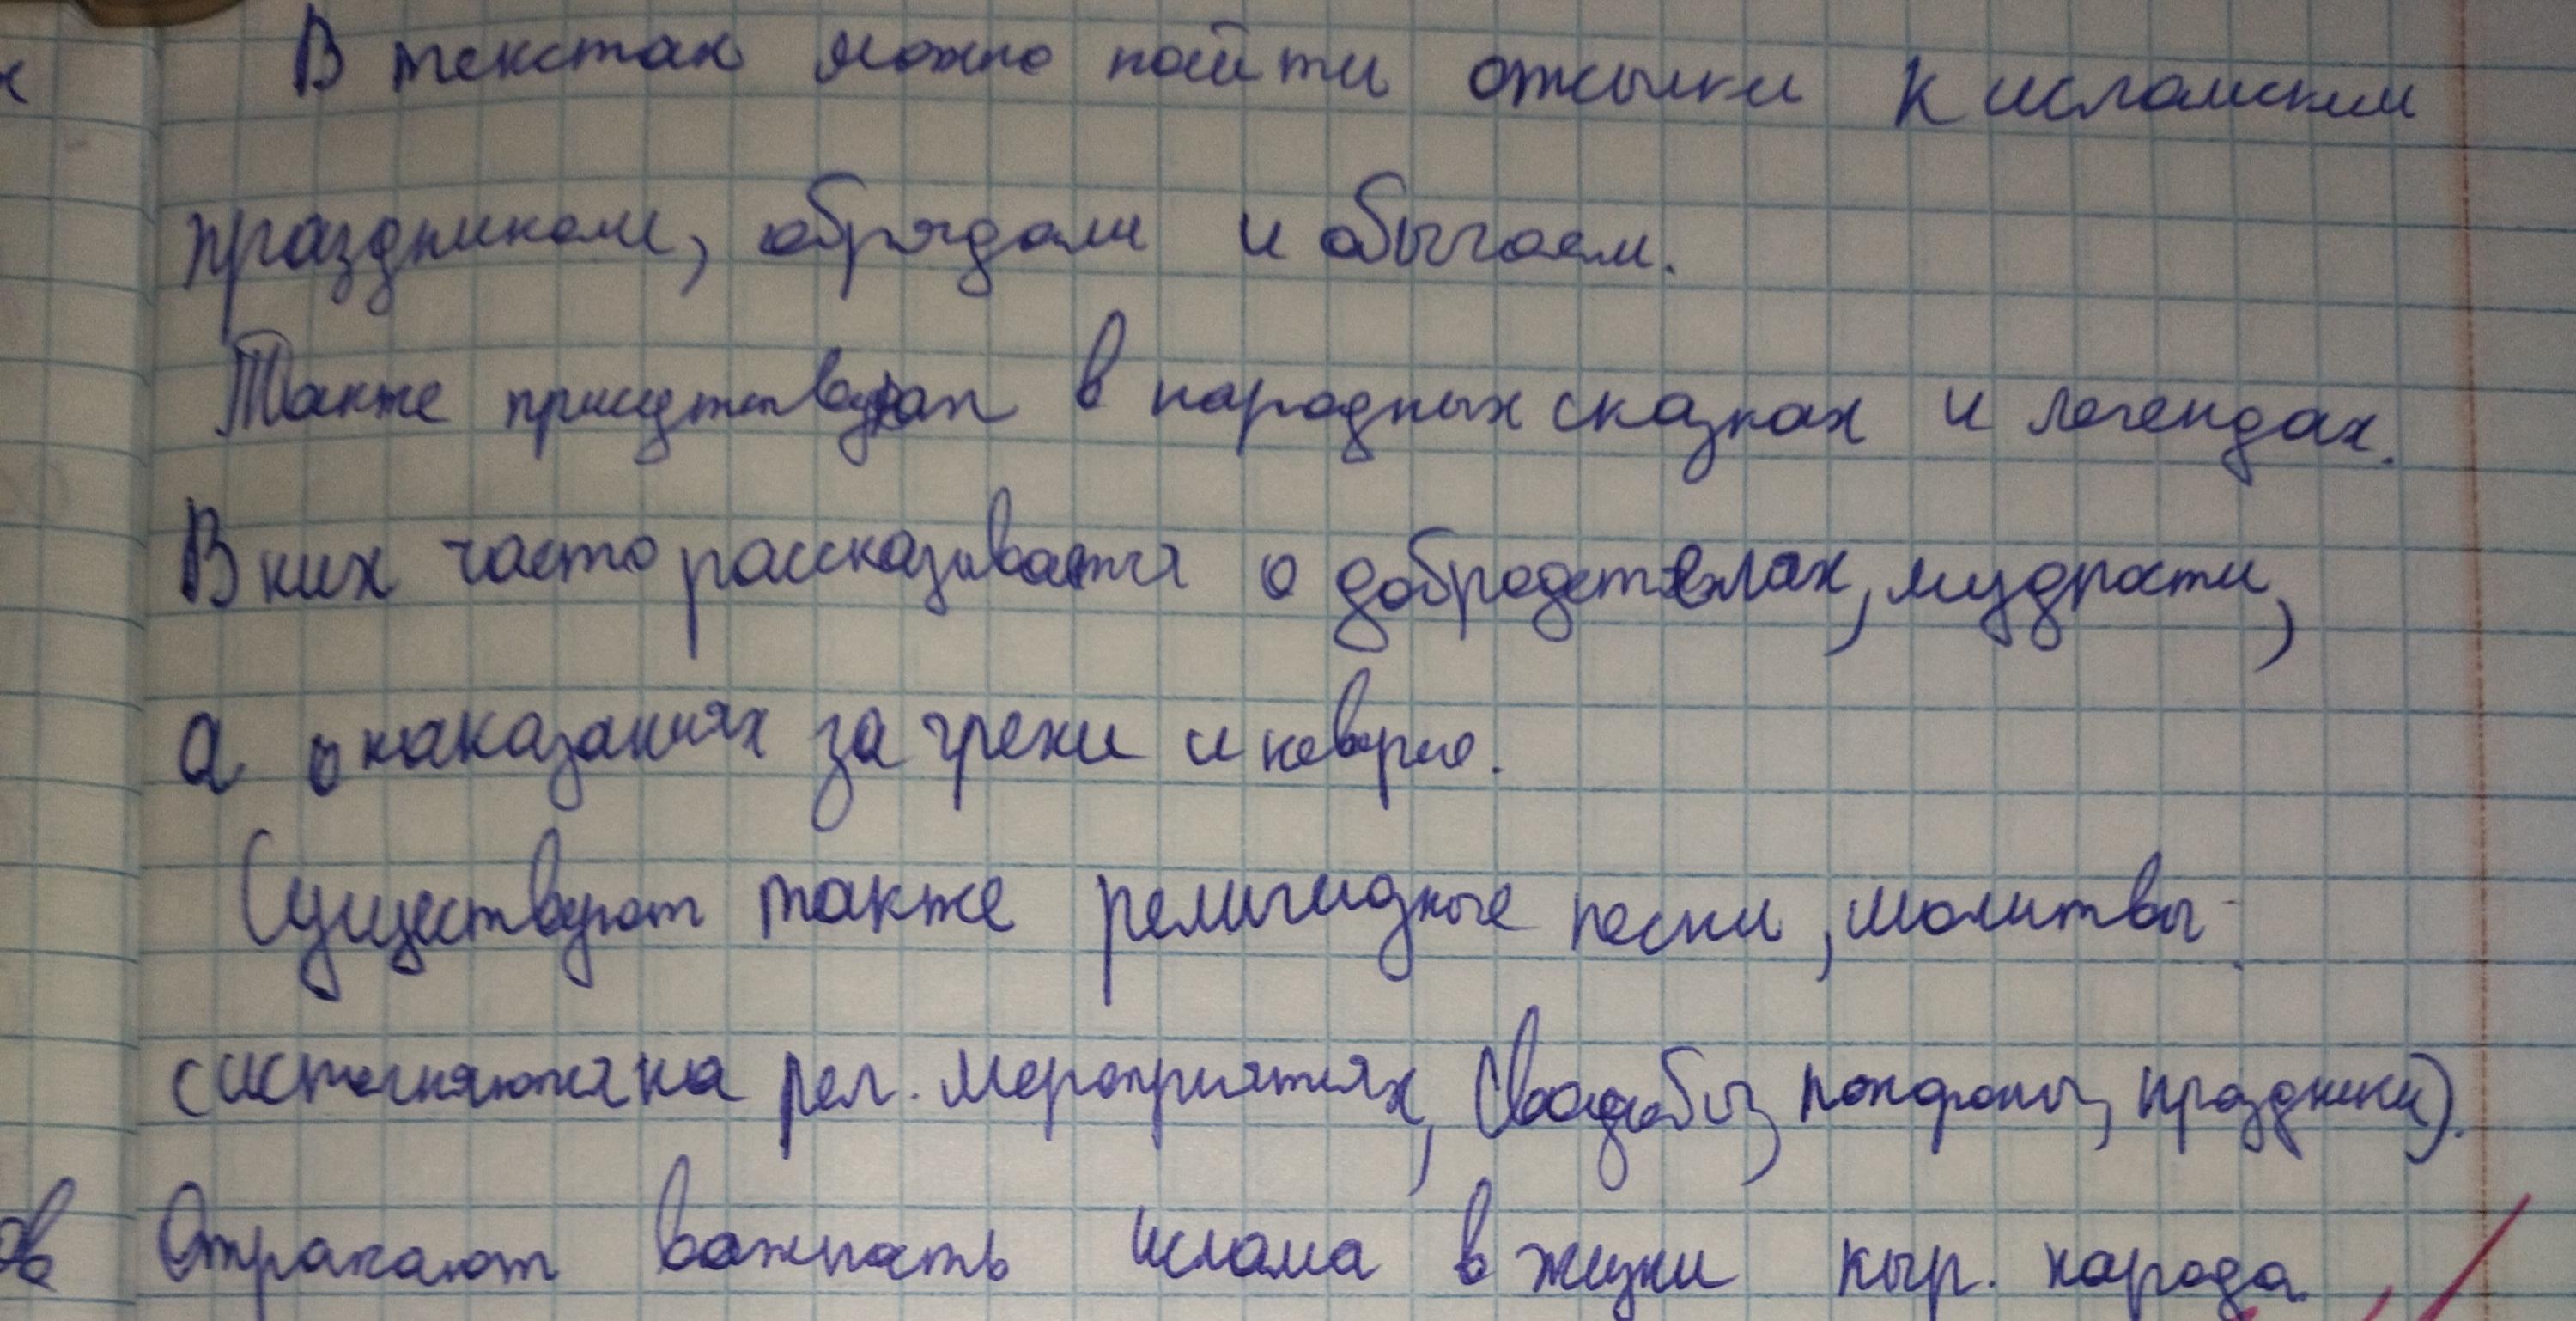 В текстах можно пойти отсылки к исламским
праздникам, обрядам и обычаем.
Также присутствуют в народных сказках и легендах.
В них часто рассказывается о добродетелях, мудрости,
а о наказаниях за грехи и неверие.
Существуют также религиозные песни, молитвы
на рел. мероприятиях, (свадьбы, похороны, праздники).
ов
Отражают важность ислама в жизни кыр. народа